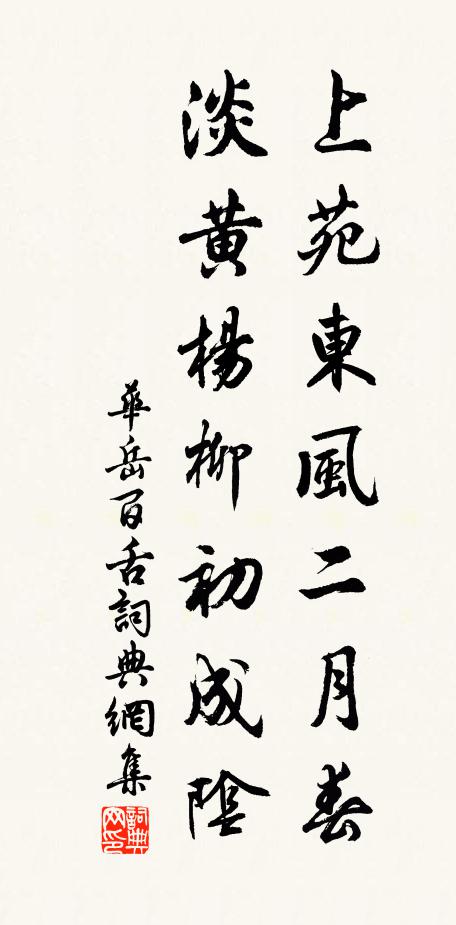 上苑東風二月春
淡黃楊柳初成陰
華岳百舌詞典網集
詞典网印